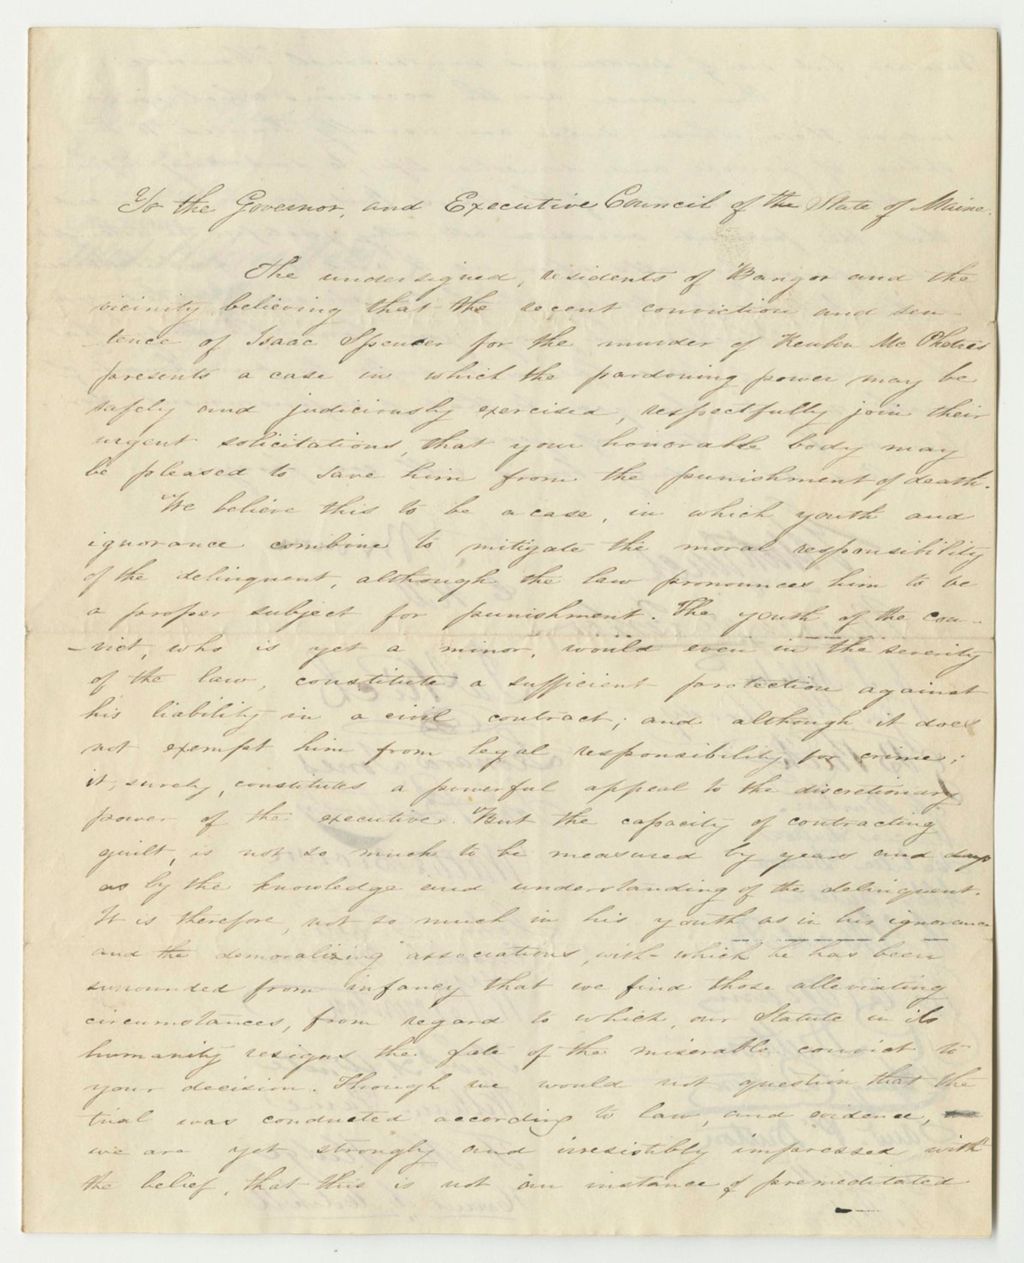 To the Governor, and Executive Council of the State of Maine.
The undersigned, residents of Bangor and the
vicinity believing that the recent conviction and sen-
tence of Isaac Spencer for the murder of Reuben McPhetres
presents a case in which the pardoning power may be
safely and judiciously exercised, respectfully join their
urgent solicitations, that your honorable body may
be pleased to save him from the punishment of death.
We believe this to be a case, in which youth and
ignorance combine to mitigate the moral responsibility
of the delinquent, although the law pronounces him to be
a proper subject for punishment. The youth of the con-
-vict, who is yet a minor, would even in the severity
of the law, constitute a sufficient protection against
his liability in a civil contract; and although it does
not exempt him from legal responsibility for crime;
it, surely, constitutes a powerful appeal to the discretionary
power of the executive. But the capacity of contracting
guilt, is not so much to be measured by years and days
as by the knowledge and understanding of the delinquent.
It is therefore, not so much in his youth as in his ignorance
and the demoralizing associations, with which he has been
surrounded from infancy that we find those alleviating
circumstances, from regard to which, our Statute in its
humanity resigns the fate of the miserable convict to
your decision. Though we would not question that the
trial was conducted according to law, and evidence,
we are yet strongly and irresistibly impressed with
the belief, that this is not an instance of premeditated